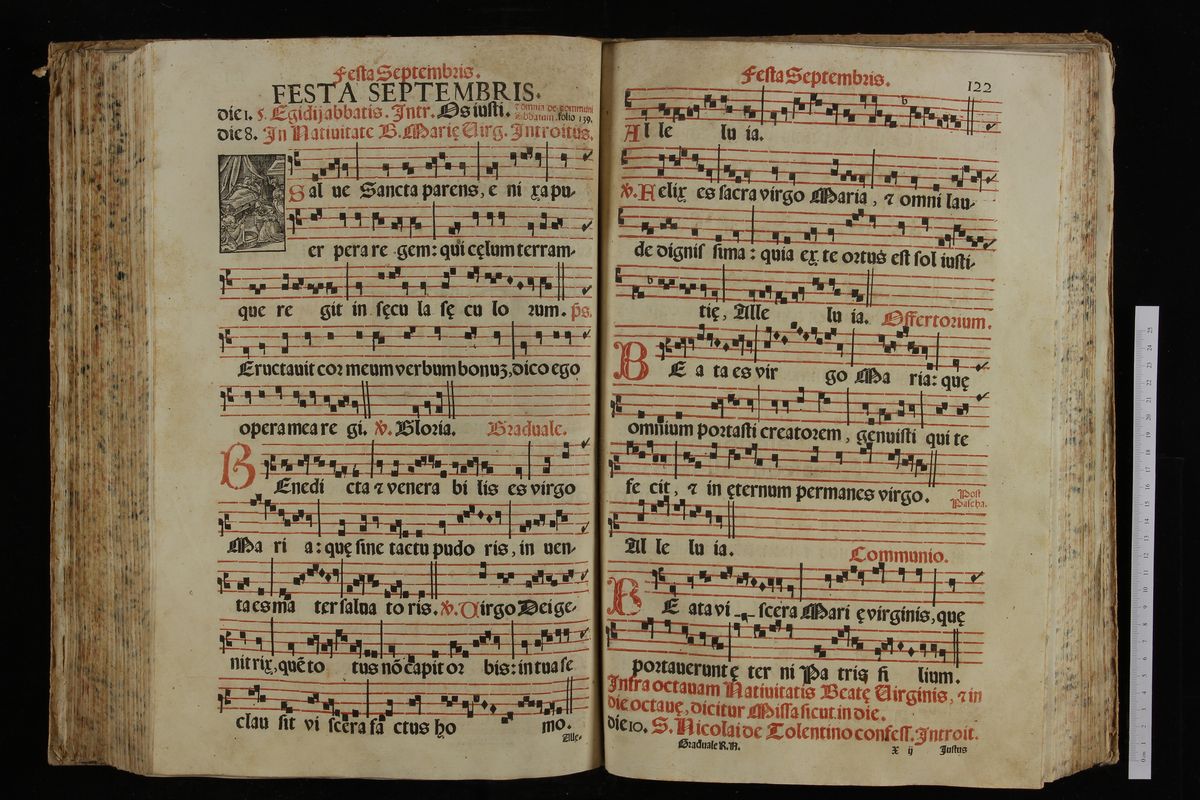 Festa Septembris.
FESTA SEPTEMBRIS.
die 1. S. Egidij abbatis. Intr. Os iusti. ⁊ omnia de communi abbatum. folio 139.
die 8. In Natiuitate B. Marię Uirg. Introitus.
Sal ue Sancta parens, e ni xa pu-
er pera re gem: qui cęlum terram-
que re git in sęcu la sę cu lo rum. ps.
Eructauit cor meum verbum bonuʒ, dico ego
opera mea re gi. ℣. Gloria. Graduale.
BEnedi cta ⁊ venera bi lis es virgo
Ma ri a: quę sine tactu pudo ris, in uen-
ta es ma ter salua to ris. ℣. Uirgo Dei ge-
nitrix, quē to tus nō capit or bis: in tua se
clau sit vi scera fa ctus ho mo.
Alle-
Festa Septembris. 122
Al le lu ia.
℣. Felix es sacra virgo Maria, ⁊ omni lau-
de dignis sima: quia ex te ortus est sol iusti-
tię, Alle lu ia. Offertorium.
BE a ta es vir go Ma ria: quę
omnium portasti creatorem, genuisti qui te
fe cit, ⁊ in ęternum permanes virgo. Post Pascha.
Al le lu ia. Communio.
BE ata vi scera Mari ę virginis, quę
portauerunt ę ter ni Pa tris fi lium.
Infra octauam Natiuitatis Beatę Uirginis, ⁊ in
die octauę, dicitur Missa sicut in die.
die 10. S. Nicolai de Tolentino confess. Introit.
Graduale R.N. X ij Justus